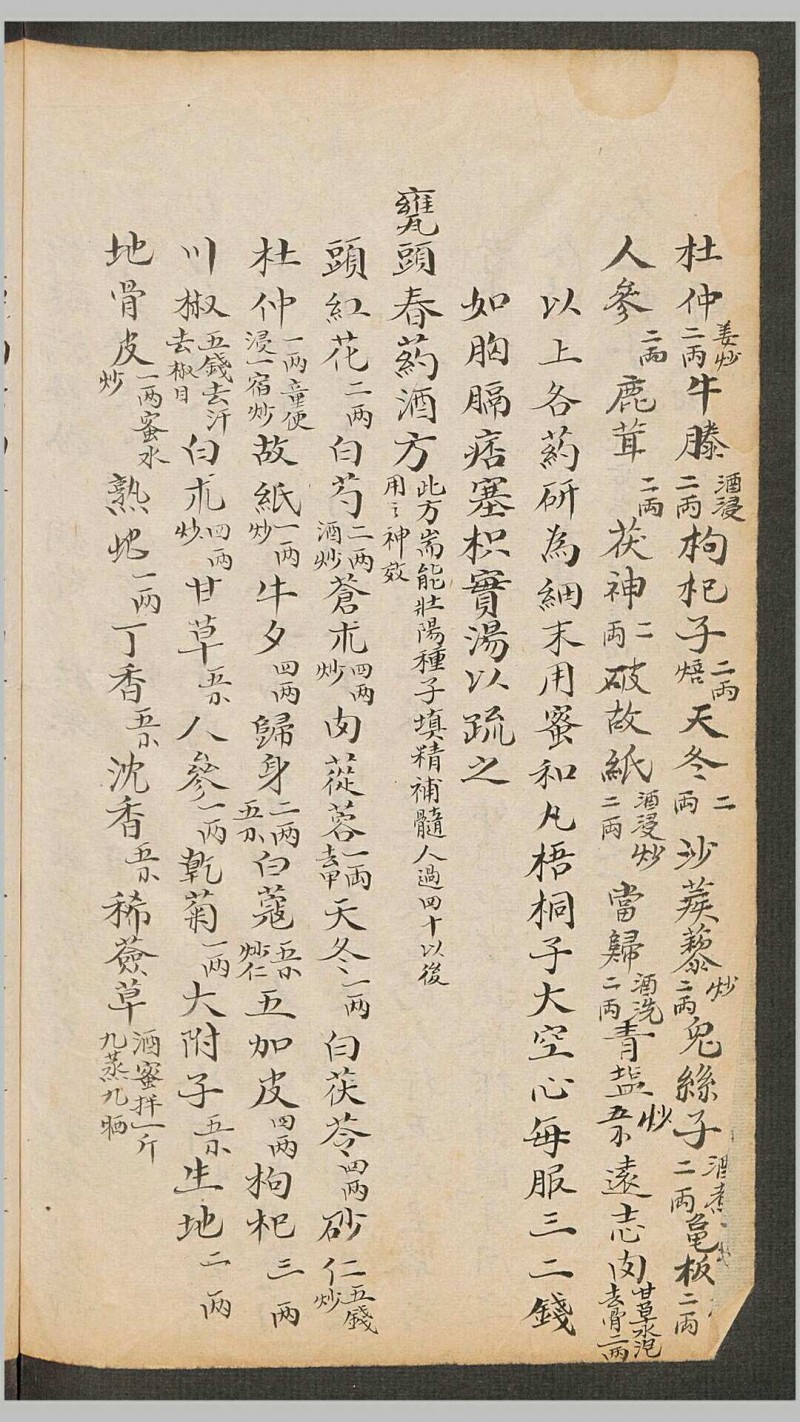 杜仲姜炒二両牛膝酒浸二両枸杞子二両焙天冬二両沙蒺藜炒二両兔絲子酒煮二両龜板二両
人參二両鹿茸二両茯神二両破故紙酒浸炒二両當歸酒洗二両青盐炒五錢遠志肉甘草水泡去骨二両
以上各药研為細末用蜜和丸梧桐子大空心每服三二錢
如胸膈痞塞枳實湯以疏之
甕頭春药酒方此方耑能壯陽種子填精補髓人過四十以後用之神效
頭紅花二両白芍二両酒炒蒼朮四両炒肉蓯蓉一両去甲天冬一両白茯苓四両砂仁五錢炒
杜仲一両童便浸一宿炒故紙一両炒牛夕四両歸身二両五錢白蔻五錢炒仁五加皮四両枸杞三両
川椒五錢去汗去椒目白朮四両炒甘草五錢人參一両乾菊一両大附子五錢生地二両
地骨皮一両蜜水炒熟地一両丁香五錢沈香五錢稀薟草酒蜜拌一斤九蒸九晒